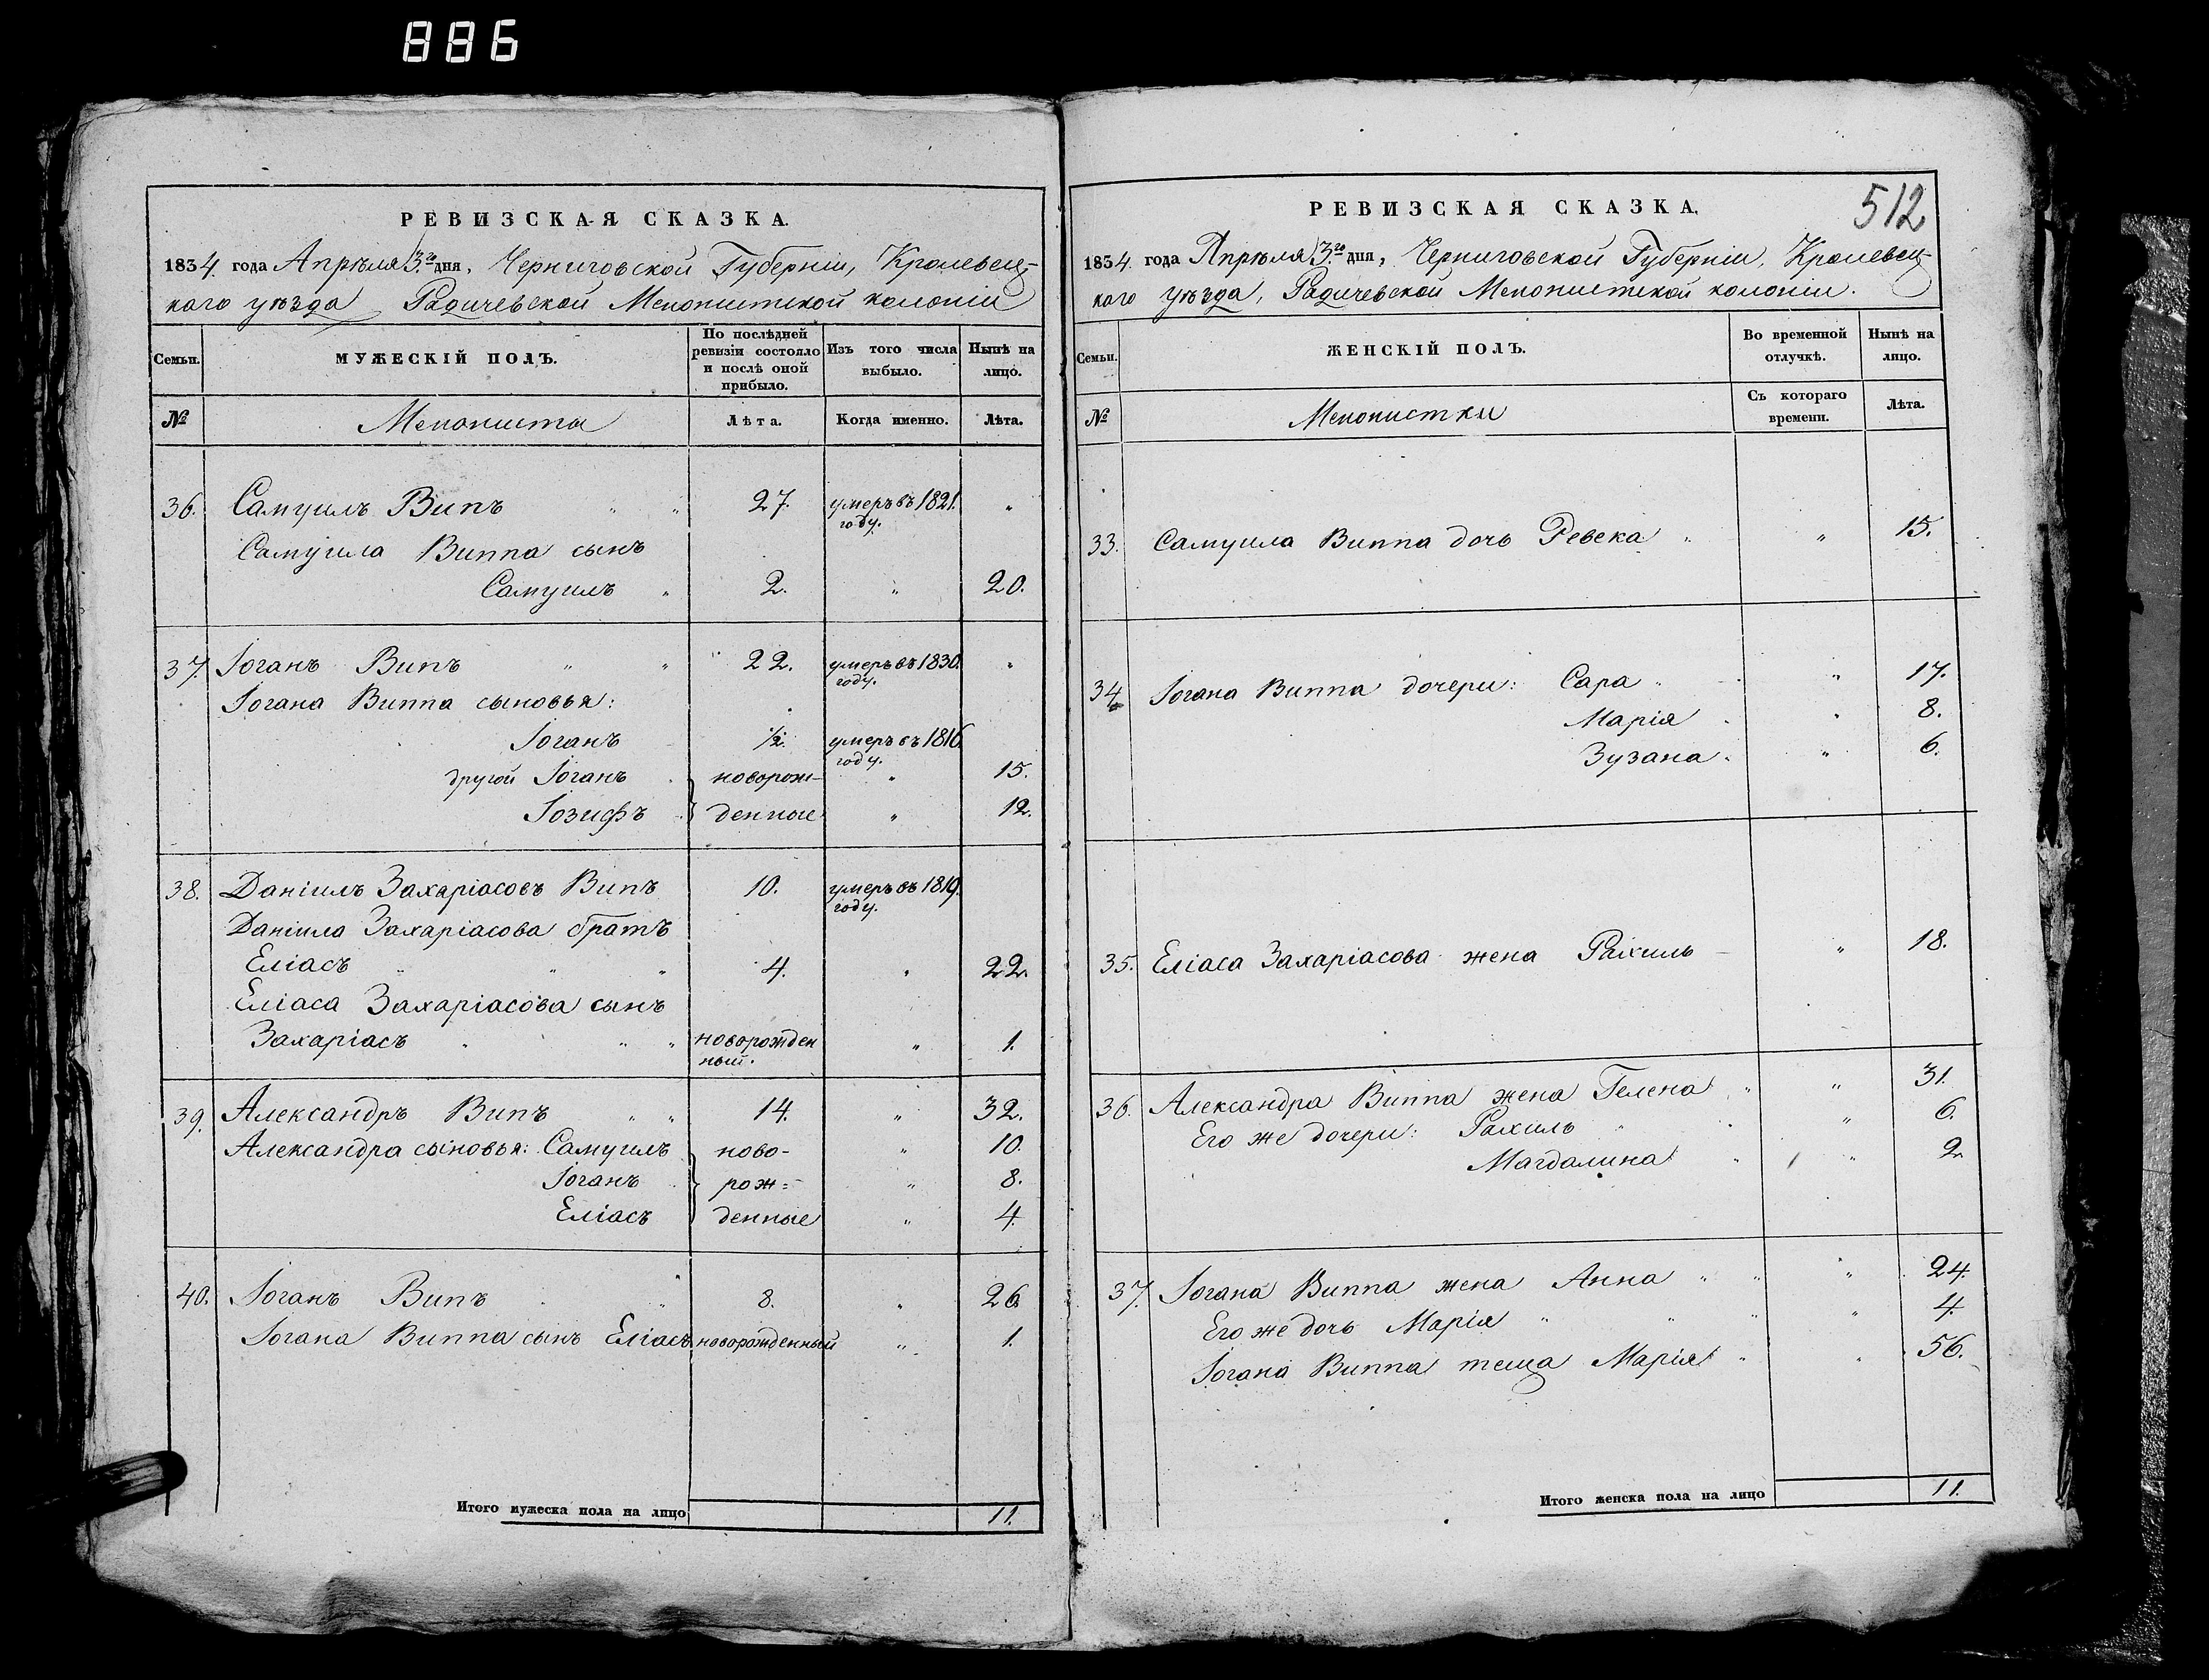 886
РЕВИЗСКАЯ СКАЗКА.
1834. года Апрѣля 3.го дня, Черниговской Губерніи, Кролевец-
каго уѣзда Радичевской Менонистской колоніи
Семьи.
МУЖЕСКІЙ ПОЛЪ.
По послѣдней ревизіи состояло и послѣ оной прибыло.
Изъ того числа выбыло.
Нынѣ на лицо.
№
Менонисты
Лѣта.
Когда именно.
Лѣта.
36. Самуилъ Випъ " " 27. умеръ въ 1821. году. "
Самуила Виппа сынъ
Самуилъ " 2. " 20.
37. Іоганъ Випъ " " 22. умеръ въ 1830. году. "
Іогана Виппа сыновья:
Іоганъ ½. умеръ въ 1816. году.
другой Іоганъ новорож- " 15.
Іозифъ денные " 12.
38. Даніилъ Захаріасовъ Випъ 10. умеръ въ 1819. году.
Даніила Захаріасова братъ
Еліасъ " " " 4. " 22.
Еліаса Захаріасова сынъ
Захаріасъ " " " новорожден ный. " 1.
39. Александръ Випъ " " 14. " 32.
Александра сыновья: Самуилъ ново- " 10.
Іоганъ рож= " 8.
Еліасъ денные " 4.
40. Іоганъ Випъ " 8. " 26.
Іогана Виппа сынъ Еліасъ новорожденный " 1.
Итого мужеска пола на лицо 11.
512
РЕВИЗСКАЯ СКАЗКА.
1834. года Апрѣля 3.го дня, Черниговской Губерніи, Кролевец-
каго уѣзда, Радичевской Менонистской колоніи.
Семьи.
ЖЕНСКІЙ ПОЛЪ.
Во временной отлучкѣ.
Нынѣ на лицо.
№
Менонистки
Съ котораго времени.
Лѣта.
33. Самуила Виппа дочь Ревека " " 15.
34. Іогана Виппа дочери: Сара " " 17.
Марія " " 8.
Зузана " " 6.
35. Еліаса Захаріасова жена Рахиль " 18.
36. Александра Виппа жена Гелена " " 31.
Его же дочери: Рахиль " " 6.
Магдалина " " 2.
37. Іогана Виппа жена Анна " " " 24.
Его же дочь Марія " " " 4.
Іогана Виппа теща Марія " " 56.
Итого женска пола на лицо 11.